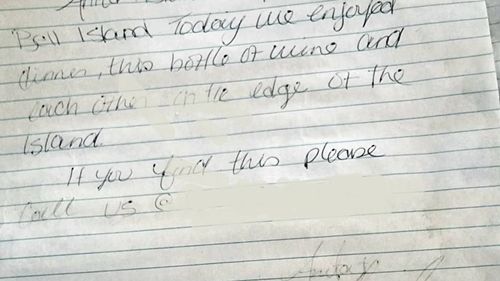 Bell Island Today we enjoyed
dinner, this bottle of wine and
each other on the edge of the
Island.
If you find this please
Call us @